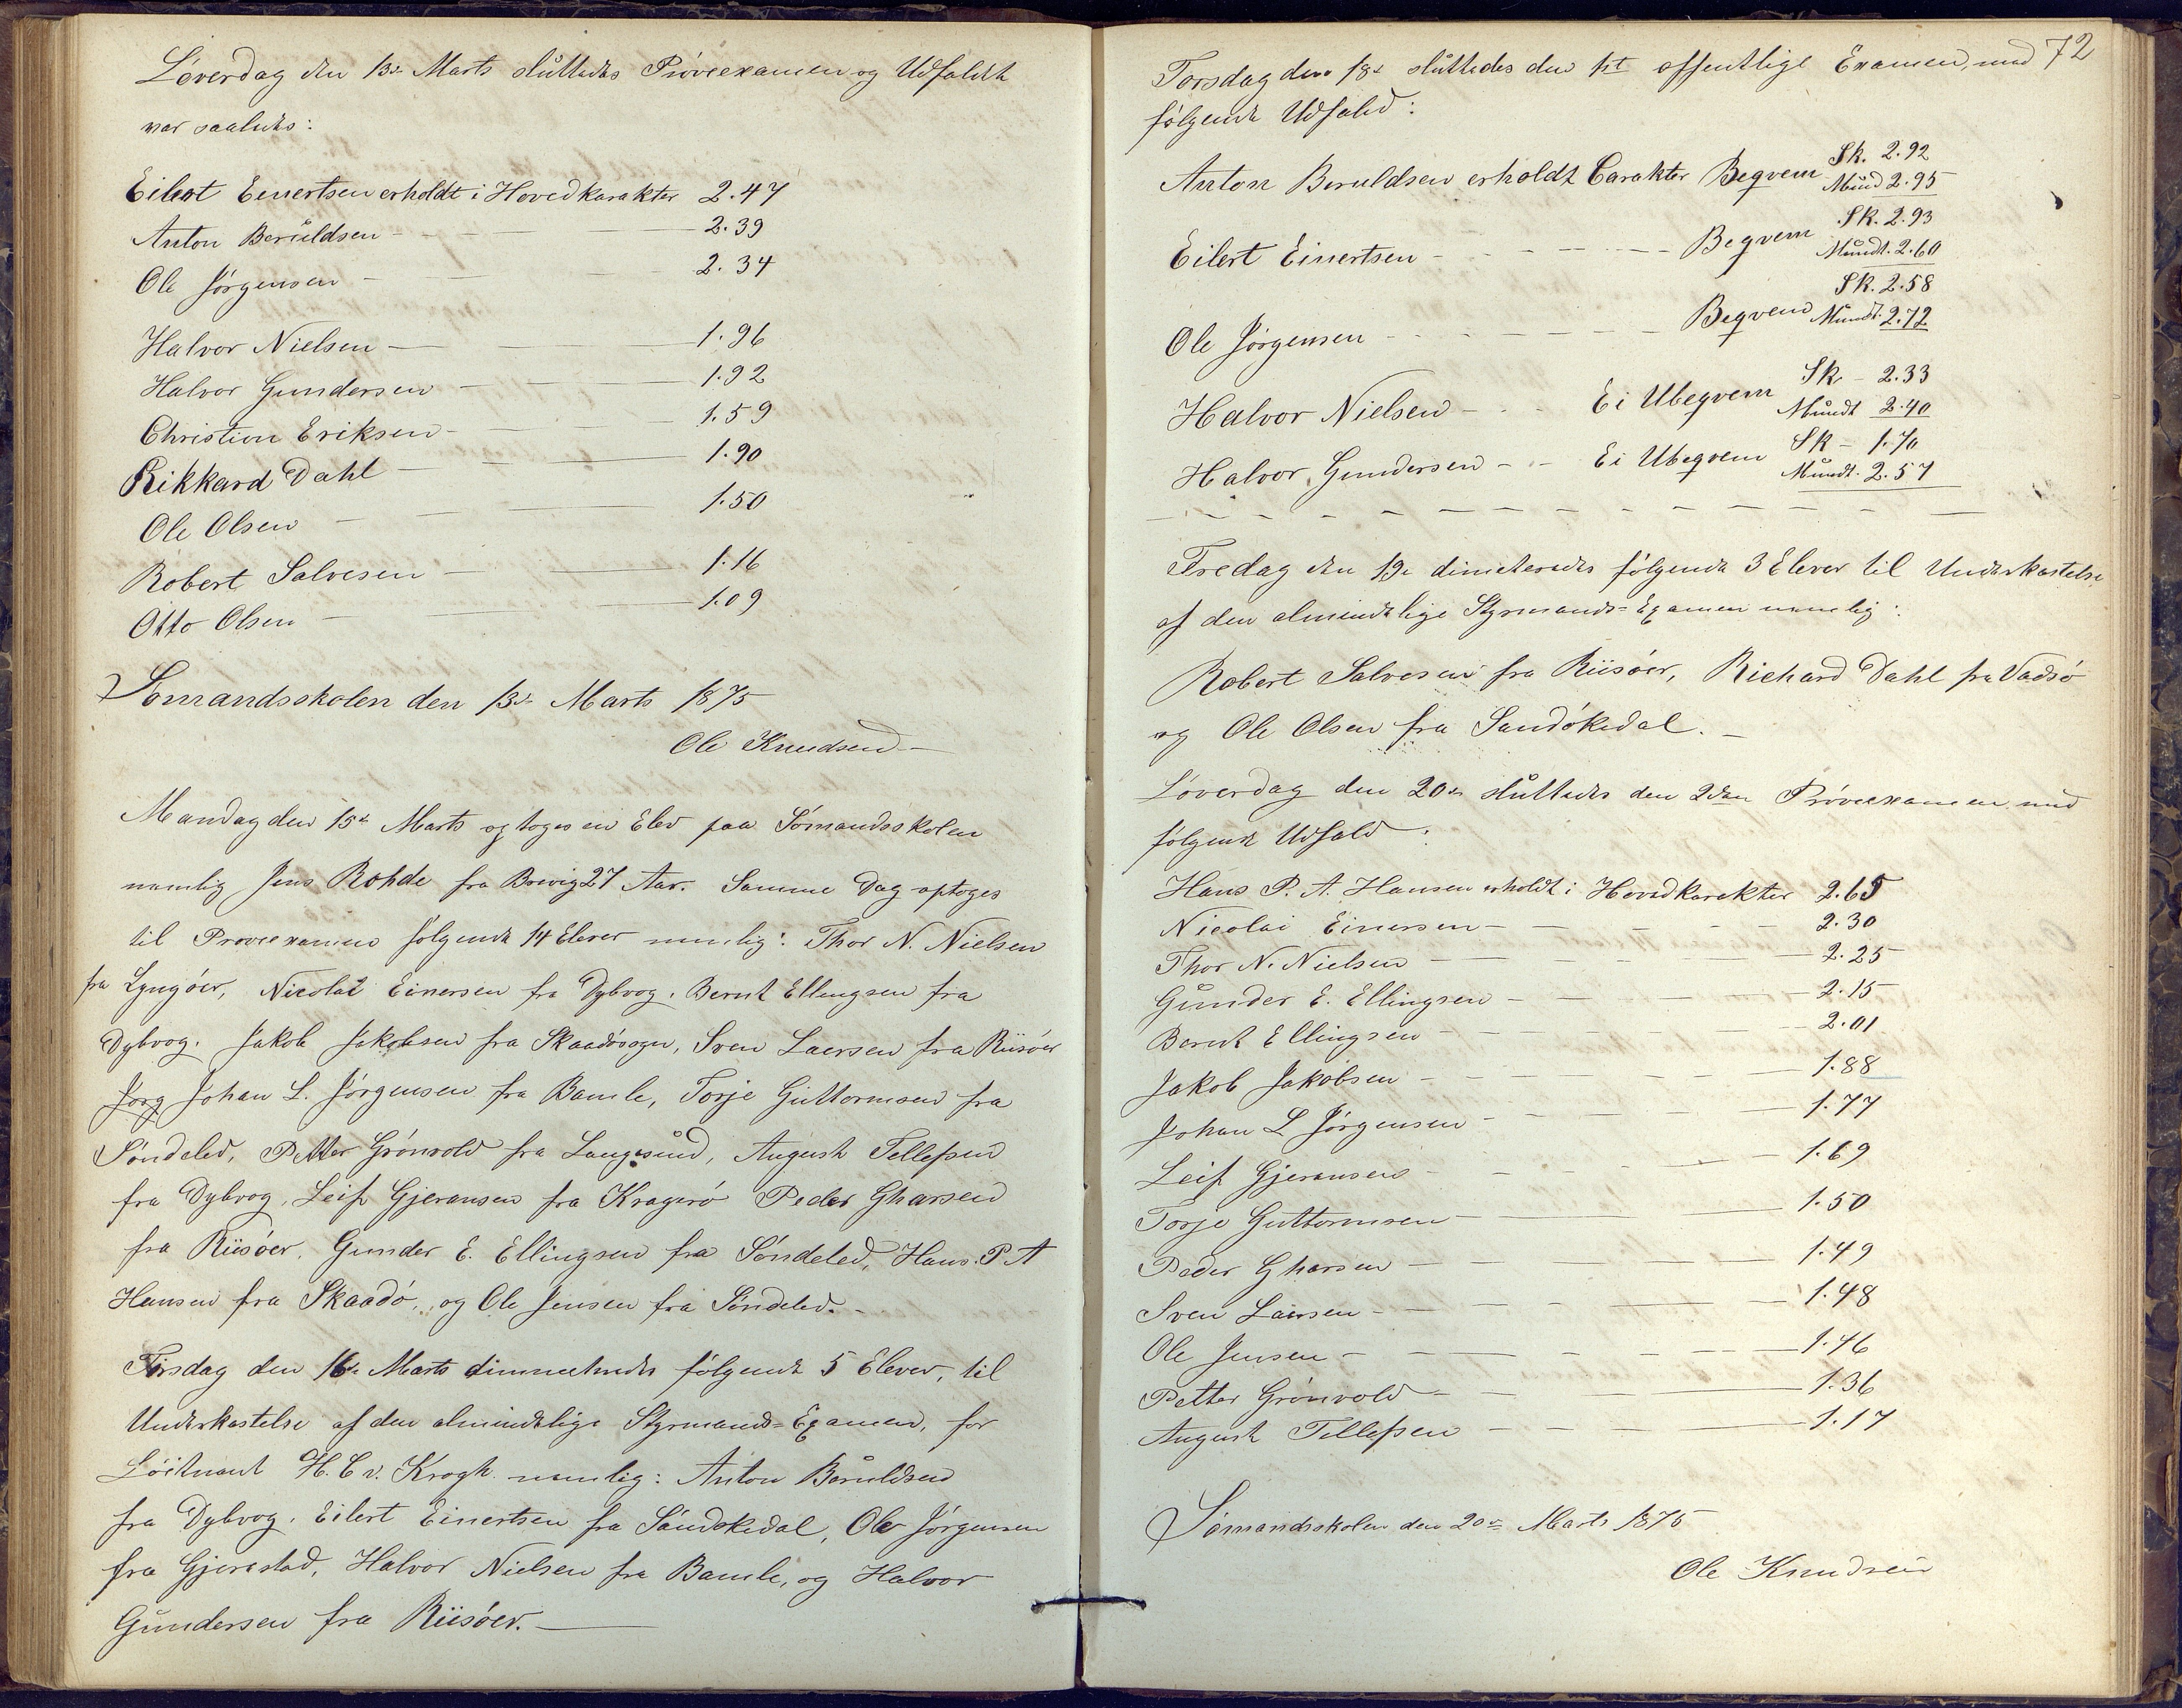 Löverdag den 13de Marts sluttedes Pröveexamen og Udfaldet
var saaledes:
Eilert Einertsen erholdt i Hovedkarakter 2.47
Anton Beruldsen - 2.39
Ole Jörgensen - 2.34
Halvor Nielsen - 1.96
Halvor Gundersen - 1.92
Christian Eriksen - 1.59
Rikkard Dahl - 1.90
Ole Olsen - 1.50
Robert Salvesen - 1.16
Otto Olsen - 1.09
Sömandsskolen den 13de Marts 1875
Ole Knudsen
Mandag den 15de Marts optoges en Elev paa Sömandsskolen
nemlig Jens Rohde fra Brevig 27 Aar. Samme Dag optoges
til Prøveexamen følgende 14 Elever nemlig: Thor N. Nielsen
fra Lyngöer, Nicolai Einersen fra Dybvog. Bernt Ellingsen fra
Dybvog. Jakob Jakobsen fra Skaadösogn, Sven Laersen fra Riisöer
Jörg Johan L. Jörgensen fra Bamle, Torje Guttormsen fra
Söndeled, Petter Grönvold fra Langesund, August Tellefsen
fra Dybvog, Leif Gjeransen fra Kragerö Peder Gharsen
fra Riisöer, Gunder E. Ellingsen fra Söndeled, Hans P. A
Hansen fra Skaadö, og Ole Jensen fra Söndeled. -
Tirsdag den 16de Marts dimmeteredes følgende 5 Elever, til
Underkastelse af den almindelige Styrmands=Examen, for
Löitnant H. C v. Krogh nemlig: Anton Beruldsen
fra Dybvog. Eilert Einertsen fra Sandökedal, Ole Jörgensen
fra Gjerestad, Halvor Nielsen fra Bamle, og Halvor
Gundersen fra Riisöer. -
72
Torsdag den 18de sluttedes den 1ste offentlige Examen, med
følgende Udfald:
Anton Beruldsen erholdt Carakter Begvem Sk. 2.92
Mund 2.95
Eilert Einertsen - Begvem Sk. 2.93
Mundt. 2.60
Ole Jörgensen - Begvem Sk. 2.58
Mundt. 2.72
Halvor Nielsen - Ei Ubegvem Sk - 2.33
Mundt 2.40
Halvor Gundersen - Ei Ubegvem Sk - 1.70
Mundt. 2.57
Fredag den 19de dimeteredes følgende 3 Elever til Underkastelse
af den almindelige Styrmands=Examen nemlig:
Robert Salvesen fra Riisöer, Richard Dahl fra Vadsö
og Ole Olsen fra Sandökedal. -
Löverdag den 20de sluttedes den 2den Pröveexamen med
følgende Udfald:
Hans P. A. Hansen erholdt i Hovedkarakter 2.65
Nicolai Einersen - 2.30
Thor N. Nielsen - 2.25
Gunder E. Ellingsen - 2.15
Bernt Ellingsen - 2.01
Jakob Jakobsen - 1.88
Johan L Jörgensen - 1.77
Leif Gjeransen - 1.69
Torje Guttormsen - 1.50
Peder Gharsen - 1.49
Sven Laersen - 1.48
Ole Jensen - 1.46
Petter Grönvold - 1.36
August Tellefsen - 1.17
Sömandsskolen den 20de Marts 1875
Ole Knudsen